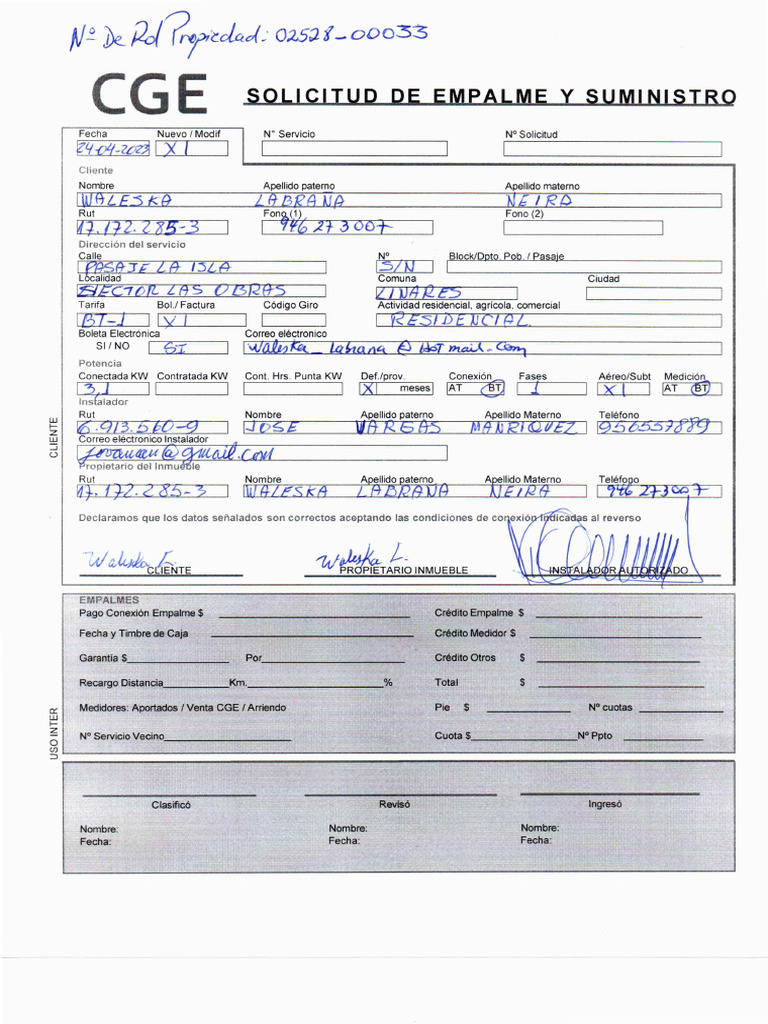 Nº De Rol Propiedad: 02528-00033
CGE SOLICITUD DE EMPALME Y SUMINISTRO
Fecha Nuevo / Modif N° Servicio Nº Solicitud
24-04-2023 XI
Cliente
Nombre Apellido paterno Apellido materno
WALESKA LABRAÑA NEIRA
Rut Fono (1) Fono (2)
17.172.285-3 946273007
Dirección del servicio
Calle Nº Block/Dpto. Pob. / Pasaje
PASAJE LA ISLA S/N
Localidad Comuna Ciudad
SECTOR LAS OBRAS LINARES
Tarifa Bol./ Factura Código Giro Actividad residencial, agrícola, comercial
BT-1 XI RESIDENCIAL
Boleta Electrónica Correo eléctronico
SI / NO SI waleska_labrana@hotmail.com
Potencia
Conectada KW Contratada KW Cont. Hrs. Punta KW Def./prov. Conexión Fases Aéreo/Subt Medición
3,1 X meses AT BT 1 XI AT BT
Instalador
Rut Nombre Apellido paterno Apellido Materno Teléfono
6.913.560-9 JOSE VARGAS MANRIQUEZ 956557889
Correo eléctronico Instalador
jovaman@gmail.com
Propietario del Inmueble
Rut Nombre Apellido paterno Apellido Materno Teléfogo
17.172.285-3 WALESKA LABRAÑA NEIRA 946273007
Declaramos que los datos señalados son correctos aceptando las condiciones de conexión indicadas al reverso
Waleska L. Waleska L.
CLIENTE PROPIETARIO INMUEBLE INSTALADOR AUTORIZADO
CLIENTE
EMPALMES
Pago Conexión Empalme $ Crédito Empalme $
Fecha y Timbre de Caja Crédito Medidor $
Garantía $ Por Crédito Otros $
Recargo Distancia Km. % Total $
Medidores: Aportados / Venta CGE / Arriendo Pie $ Nº cuotas
Nº Servicio Vecino Cuota $ Nº Ppto
USO INTER
Clasificó Revisó Ingresó
Nombre: Nombre: Nombre:
Fecha: Fecha: Fecha: